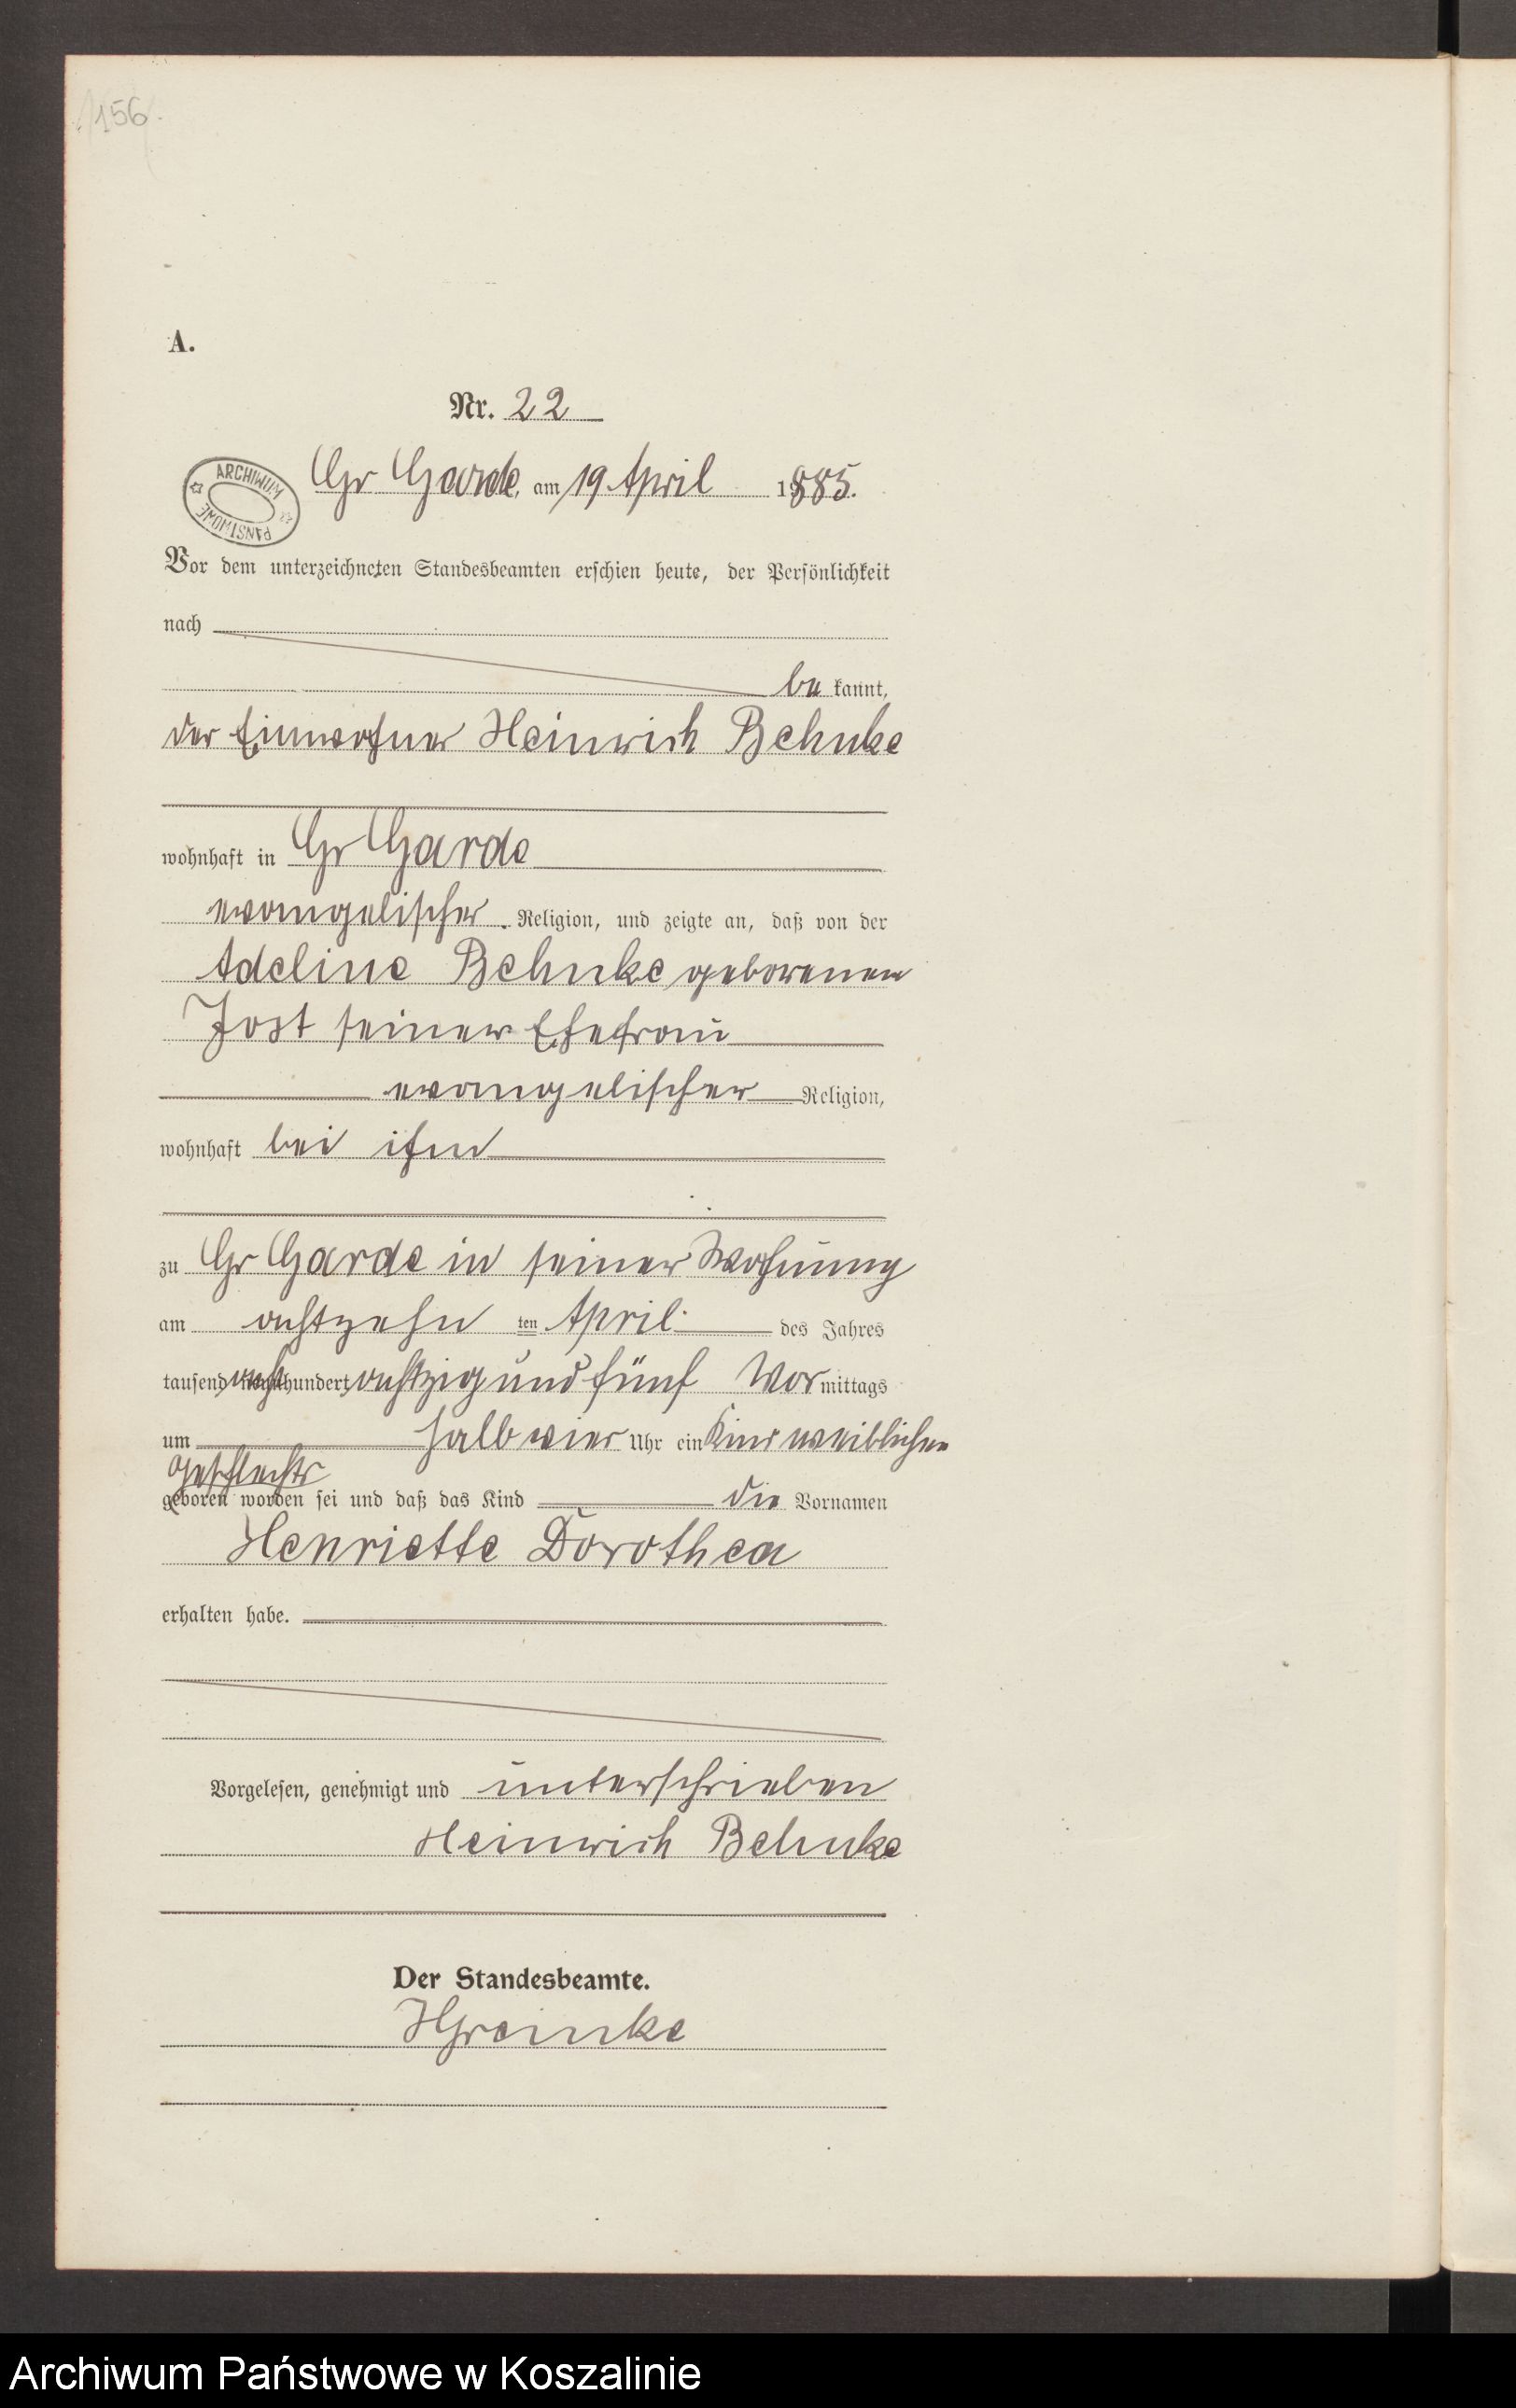 156.
A.
Nr. 22
ARCHIWUM PAŃSTWOWE
Gr Garde, am 19 April 1885.
Vor dem unterzeichneten Standesbeamten erschien heute, der Persönlichkeit
nach
be kannt,
der Einwohner Heinrich Behnke
wohnhaft in Gr Garde
evangelischer Religion, und zeigte an, daß von der
Adeline Behnke geborenen
Jost seiner Ehefrau
evangelischer Religion,
wohnhaft bei ihm
zu Gr Garde in seiner Wohnung
am achtzehn ten April des Jahres
tausend acht hundert achtzig und fünf Vor mittags
um halb vier Uhr ein Kind weiblichen
Geschlechts
geboren worden sei und daß das Kind die Vornamen
Henriette Dorothea
erhalten habe.
Vorgelesen, genehmigt und unterschrieben
Heinrich Behnke
Der Standesbeamte.
Archiwum Państwowe w Koszalinie